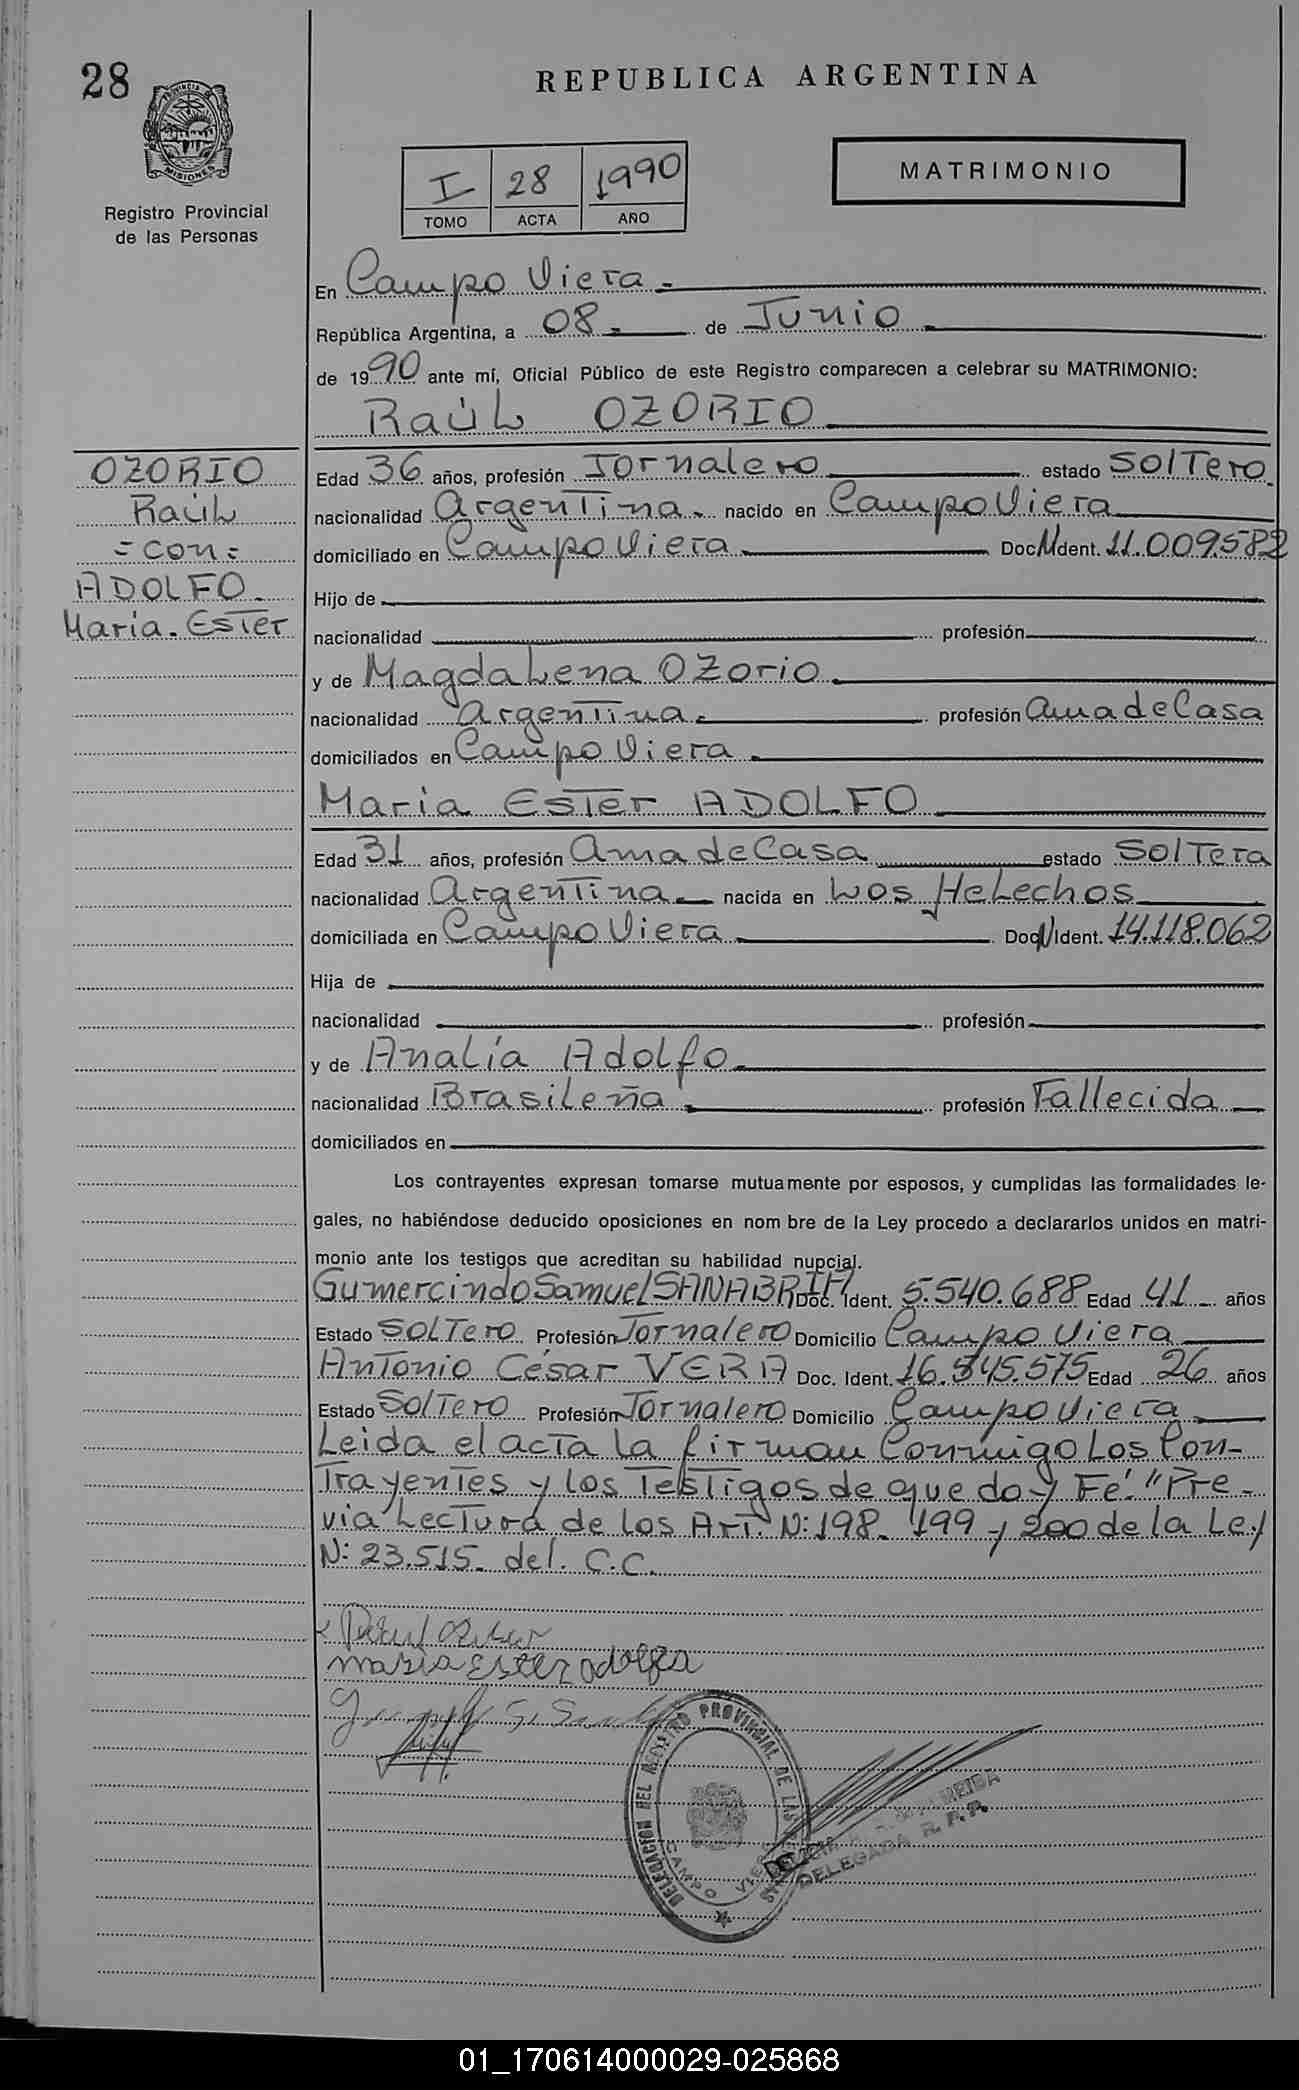 28
REPUBLICA ARGENTINA
PROVINCIA DE
MISIONES
Registro Provincial
de las Personas
I 28 1990
TOMO ACTA AÑO
MATRIMONIO
En Campo Viera
República Argentina, a 08 de Junio
de 1990 ante mí, Oficial Público de este Registro comparecen a celebrar su MATRIMONIO:
Raúl OZORIO
OZORIO
Raúl
=con=
ADOLFO
Maria. Ester
Edad 36 años, profesión Jornalero estado Soltero
nacionalidad Argentina nacido en Campo Viera
domiciliado en Campo Viera Doc. N Ident. 11.009.582
Hijo de
nacionalidad profesión
y de Magdalena Ozorio
nacionalidad Argentina profesión Ama de Casa
domiciliados en Campo Viera
Maria Ester ADOLFO
Edad 31 años, profesión Ama de Casa estado Soltera
nacionalidad Argentina nacida en Los Helechos
domiciliada en Campo Viera Doc. N Ident. 14.118.062
Hija de
nacionalidad profesión
y de Analía Adolfo
nacionalidad Brasileña profesión Fallecida
domiciliados en
Los contrayentes expresan tomarse mutuamente por esposos, y cumplidas las formalidades le-
gales, no habiéndose deducido oposiciones en nom bre de la Ley procedo a declararlos unidos en matri-
monio ante los testigos que acreditan su habilidad nupcial.
Gumercindo Samuel SANABRIA Doc. Ident. 5.540.688 Edad 41 años
Estado Soltero Profesión Jornalero Domicilio Campo Viera
Antonio César VERA Doc. Ident. 16.345.575 Edad 26 años
Estado Soltero Profesión Jornalero Domicilio Campo Viera
Leida el acta la firman Conmigo Los Con-
trayentes y los Testigos de que doy Fé. "Pre-
via Lectura de los Art. N: 198- 199 y 200 de la Ley
N: 23.515- del. C.C.
Raul Ozorio
maria Ester adolfo
DELEGACION DEL REGISTRO PROVINCIAL DE LAS
CAMPO VIERA
DELEGADA R. P. P.
01_170614000029-025868